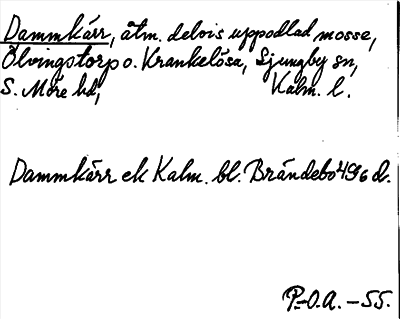 Dammkärr, åtm. delvis uppodlad mosse,
Ölvingstorp o. Krankelösa, Ljungby sn,
S. Möre hd, Kalm. l.
Dammkärr ek Kalm. bl. Brändebo 4G6 d.
P.-O.A. - 55.